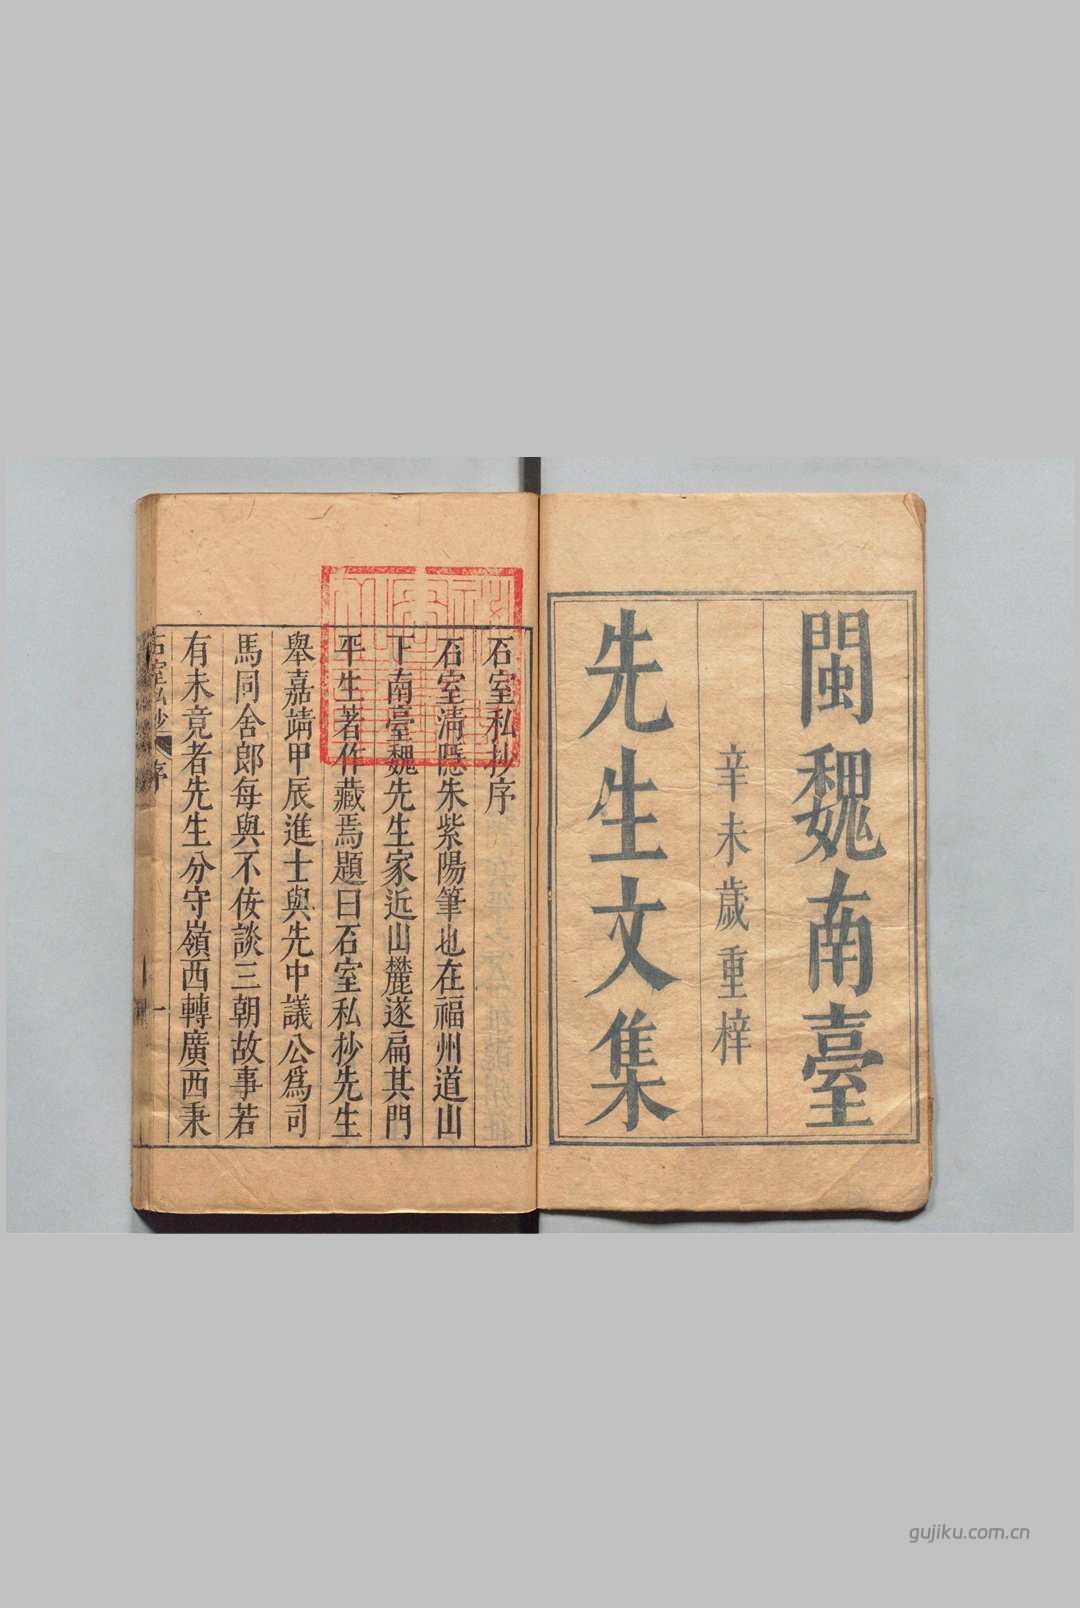 閩魏南臺
辛未歲重梓
先生文集
石室私抄序
石室清隱朱紫陽筆也在福州道山
下南臺魏先生家近山麓遂扁其門
平生著作藏焉題曰石室私抄先生
舉嘉靖甲辰進士與先中議公爲司
馬同舍郎每與不佞談三朝故事若
有未竟者先生分守嶺西轉廣西秉
石室私抄 序 一
gujiku.com.cn